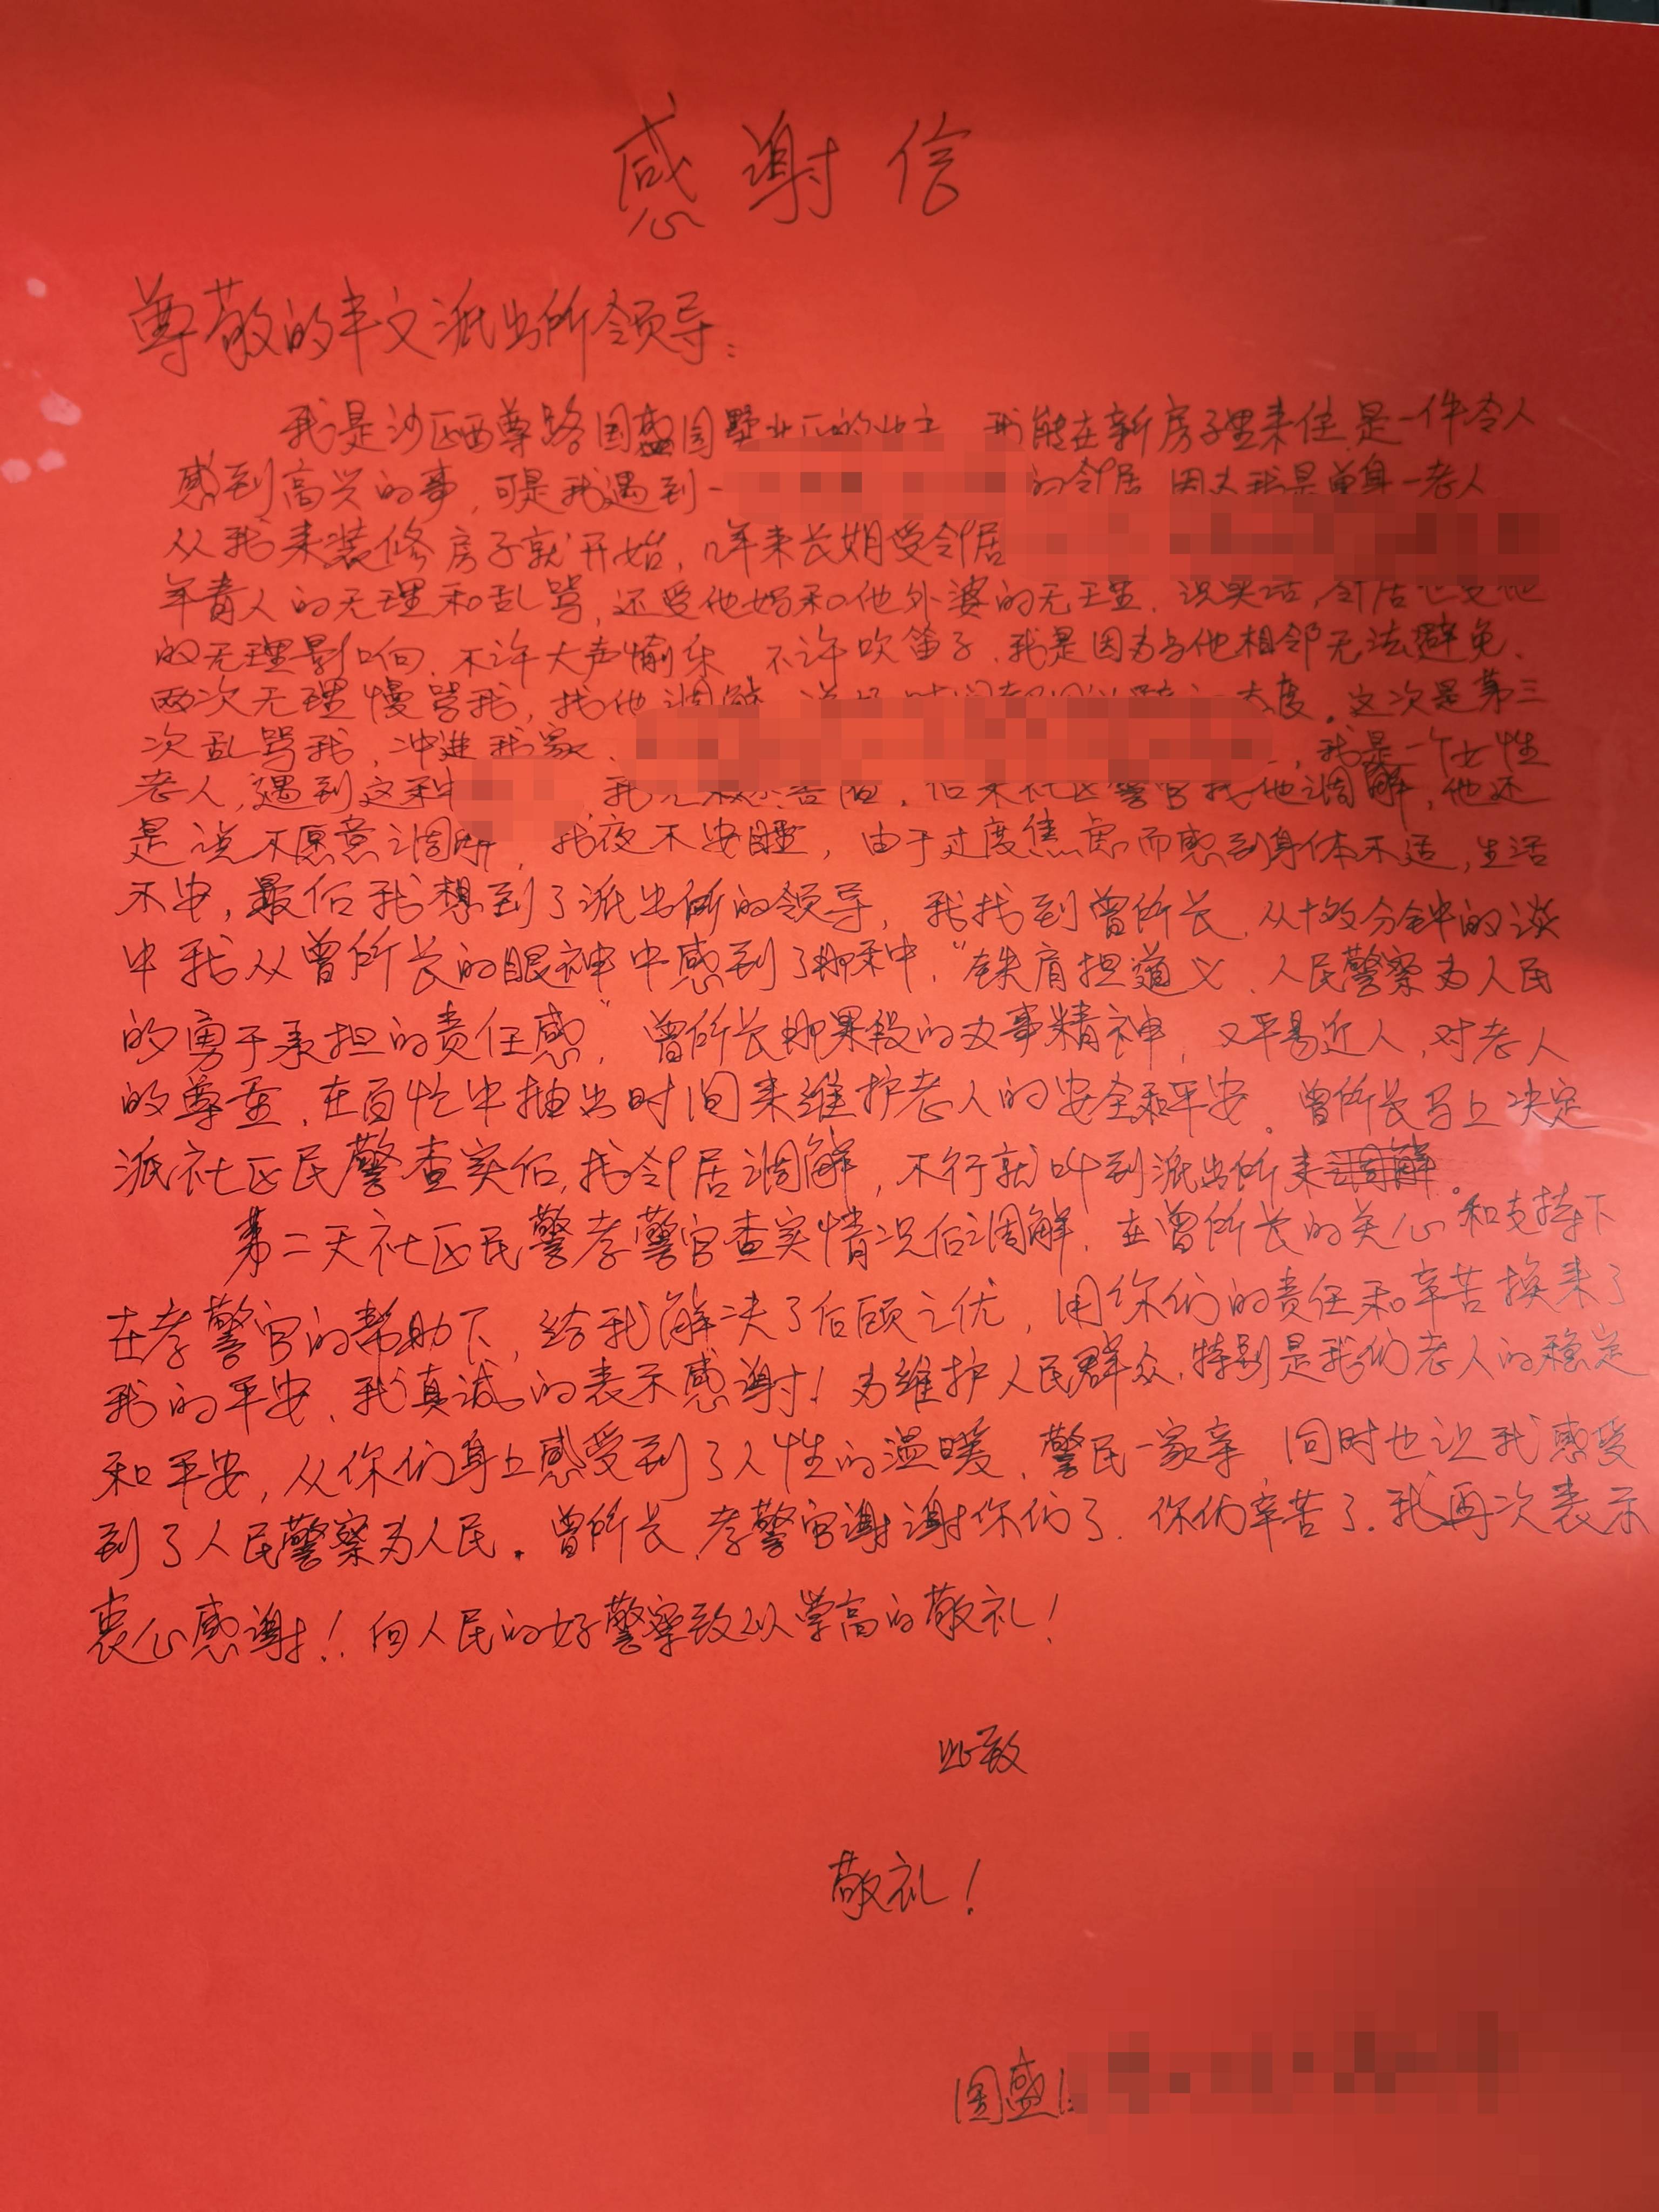 感谢信
尊敬的丰文派出所领导：
我是沙区西尊路国盛国墅 的业主 我能在新房子里来住是一件令人
感到高兴的事，可是我遇到一 的邻居 因为我是单身一老人
从我来装修房子就开始，几年来长期受邻居
年青人的无理和乱骂，还受他妈和他外婆的无理，说笑话，邻居也受他
的无理影响，不许大声 不许吹笛子，我是因为与他相邻无法避免、
两次无理慢骂我，找他调解 态度。这次是第三
次乱骂我，冲进我家、 ，我是一个女性
老人，遇到这种 我 ，后来社区警官找他调解，他还
是说不愿意调解，我夜不安睡，由于过度焦虑而感到身体不适，生活
不安，最后我想到了派出所的领导，我找到曾所长，从十多分钟的谈
中我从曾所长的眼神中感到了那种，“铁肩担道义、人民警察为人民
的勇于承担的责任感”，曾所长那果段的办事精神，又平易近人，对老人
的尊重，在百忙中抽出时间来维护老人的安全和平安。曾所长马上决定
派社区民警查实后，找邻居调解，不行就叫到派出所来调解。
第二天社区民警李警官查实情况后调解，在曾所长的关心和支持下
在李警官的帮助下，给我解决了后顾之优，用你们的责任和辛苦换来了
我的平安，我真诚的表示感谢！为维护人民群众，特别是我们老人的稳定
和平安，从你们身上感受到了人性的温暖，警民一家亲 同时也让我感受
到了人民警察为人民。曾所长，李警官谢谢你们了，你们辛苦了。我再次表示
衷心感谢！！向人民的好警察致以崇高的敬礼！
此致
敬礼！
国盛